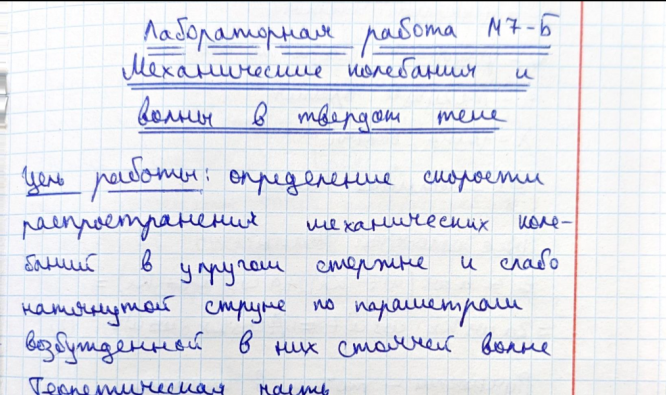 Лабораторная работа М7-Б
Механические колебания и
волны в твердом теле
Цель работы: определение скорости
распространения механических коле-
баний в упругом стержне и слабо
натянутой струне по параметрам
возбужденной в них стоячей волне
Теоретическая часть